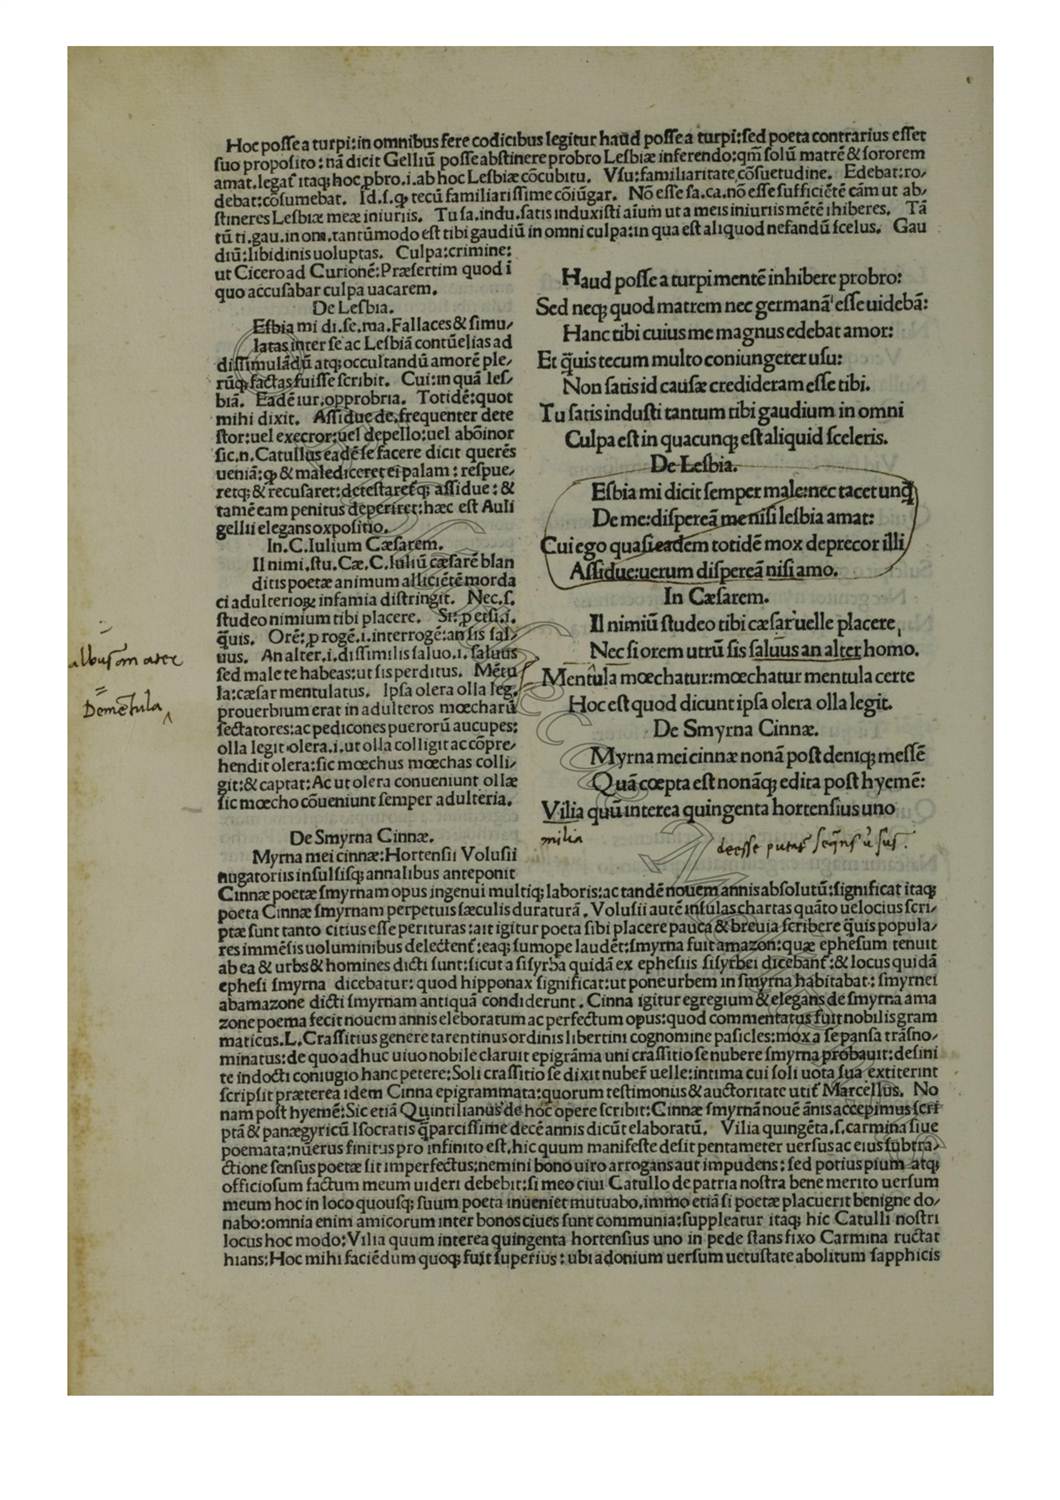 Hoc posse a turpi: in omnibus fere codicibus legitur haud posse a turpi: sed poeta contrarius esset
suo proposito: nā dicit Gelliū posse abstinere probro Lesbiæ inferendo: qm̄ solū matrē & sororem
amat. legaſ itaq; hoc ꝓbro .i. ab hoc Lesbiæ cōcubitu. Vsu: familiaritate cōsuetudine. Edebat: ro/
debat: cōsumebat. Id .s. ꝙ tecū familiarissime cōiūgar. Nō esse sa. ca. nō esse sufficiētē cām ut ab/
stineres Lesbiæ meæ iniuriis. Tu sa. indu. satis induxisti aīum ut a meis iniuriis mētē ihiberes. Tā
tū ti. gau. in om. tantūmodo est tibi gaudiū in omni culpa: in qua est aliquod nefandū scelus. Gau
diū: libidinis uoluptas. Culpa: crimine:
ut Cicero ad Curionē: Præsertim quod i
quo accusabar culpa uacarem.
De Lesbia.
Esbia mi di. se. ma. Fallaces & simu/
latas inter se ac Lesbiā contūelias ad
dissimulādū atq; occultandū amorē ple/
rūq; factas fuisse scribit. Cui: in quā les/
biā. Eadē iur. opprobria. Totidē: quot
mihi dixit. Assidue de. frequenter dete
stor: uel execror: uel depello: uel abōinor
sic .n. Catullus eadē se facere dicit querēs
ueniā: ꝙ & malediceret ei palam: respue/
retq; & recusaret: detestaretq; assidue: &
tamē eam penitus deperiret: hæc est Auli
gellii elegans oxpositio.
In. C. Iulium Cæsarem.
Il nimi. stu. Cæ. C. Iuliū cæsarē blan
ditis poetæ animum alliciētē morda
ci adulterioꝝ infamia distringit. Nec. s.
studeo nimium tibi placere. Si: ꝓ etsi .i.
q̄uis. Orē: ꝓ rogē .i. interrogē: an sis sal/
uus. An alter .i. dissimilis saluo .i. saluus
sed male te habeas: ut sis perditus. Mētu
la: cæsar mentulatus. Ipsa olera olla leg.
prouerbium erat in adulteros mœcharū
sectatores: ac pedicones puerorū aucupes:
olla legit olera .i. ut olla colligit ac cōpre/
hendit olera: sic mœchus mœchas colli/
git: & captat: Ac ut olera conueniunt ollæ
sic mœcho cōueniunt semper adulteria.
De Smyrna Cinnæ.
Myrna mei cinnæ: Hortensii Volusii
nugatoriis insulsisq; annalibus anteponit
Haud posse a turpi mentē inhibere probro:
Sed neq; quod matrem nec germanā esse uidebā:
Hanc tibi cuius me magnus edebat amor:
Et q̄uis tecum multo coniungerer usu:
Non satis id causæ credideram esse tibi.
Tu satis industi tantum tibi gaudium in omni
Culpa est in quacunq; est aliquid sceleris.
De Lesbia.
Esbia mi dicit semper male: nec tacet unq̄
De me: dispereā me nisi lesbia amat:
Cui ego quasi eadem totidē mox deprecor illi
Assidue: uerum dispereā nisi amo.
In Cæsarem.
Il nimiū studeo tibi cæsar uelle placere
Nec si orem utrū sis saluus an alter homo.
Mentula mœchatur: mœchatur mentula certe
Hoc est quod dicunt ipsa olera olla legit.
De Smyrna Cinnæ.
Myrna mei cinnæ nonā post deniq; messē
Quā cœpta est nonāq; edita post hyemē:
Vilia quū interea quingenta hortensius uno
milia
deesse putat seq̄ns
albus an ater
Demētula
Cinnæ poetæ smyrnam opus ingenui multiq; laboris: ac tandē nouem annis absolutū: significat itaq;
poeta Cinnæ smyrnam perpetuis sæculis duraturā. Volusii autē insulas chartas quāto uelocius scri/
ptæ sunt tanto citius esse perituras: ait igitur poeta sibi placere pauca & breuia scribere q̄uis popula/
res immēsis uoluminibus delectenſ: eaq; sumope laudēt: smyrna fuit amazon: quæ ephesum tenuit
ab ea & urbs & homines dicti sunt: sicut a sisyrba quidā ex ephesiis sisyrbei dicebanſ: & locus quidā
ephesi smyrna dicebatur: quod hipponax significat: ut pone urbem in smyrna habitabat: smyrnei
ab amazone dicti smyrnam antiquā condiderunt. Cinna igitur egregium & elegans de smyrna ama
zone poema fecit nouem annis eleboratum ac perfectum opus: quod commentatus fuit nobilis gram
maticus. L. Crassitius genere tarentinus ordinis libertini cognomine pasicles: mox a se pansa trāsno/
minatus: de quo adhuc uiuo nobile claruit epigrāma uni crassitio se nubere smyrna probauit: desini
te indocti coniugio hanc petere: Soli crassitio se dixit nuber̄ uelle: intima cui soli uota sua extiterint
scripsit præterea idem Cinna epigrammata: quorum testimoniis & auctoritate utiſ Marcellus. No
nam post hyemē: Sic etiā Quintilianus de hoc opere scribit: Cinnæ smyrnā nouē ānis accepimus scri
ptā & panægyricū Isocratis q̄ parcissime decē annis dicūt elaboratū. Vilia quingēta .s. carmina siue
poemata: nūerus finitus pro infinito est, hic quum manifeste desit pentameter uersus ac eius subtra/
ctione sensus poetæ sit imperfectus: nemini bono uiro arrogans aut impudens: sed potius pium atq;
officiosum factum meum uideri debebit: si meo ciui Catullo de patria nostra bene merito uersum
meum hoc in loco quousq; suum poeta inueniet mutuabo, immo etiā si poetæ placuerit benigne do/
nabo: omnia enim amicorum inter bonos ciues sunt communia: suppleatur itaq; hic Catulli nostri
locus hoc modo: Vilia quum interea quingenta hortensius uno in pede stans fixo Carmina ructat
hians: Hoc mihi faciēdum quoq; fuit superius: ubi adonium uersum uetustate abolitum sapphicis